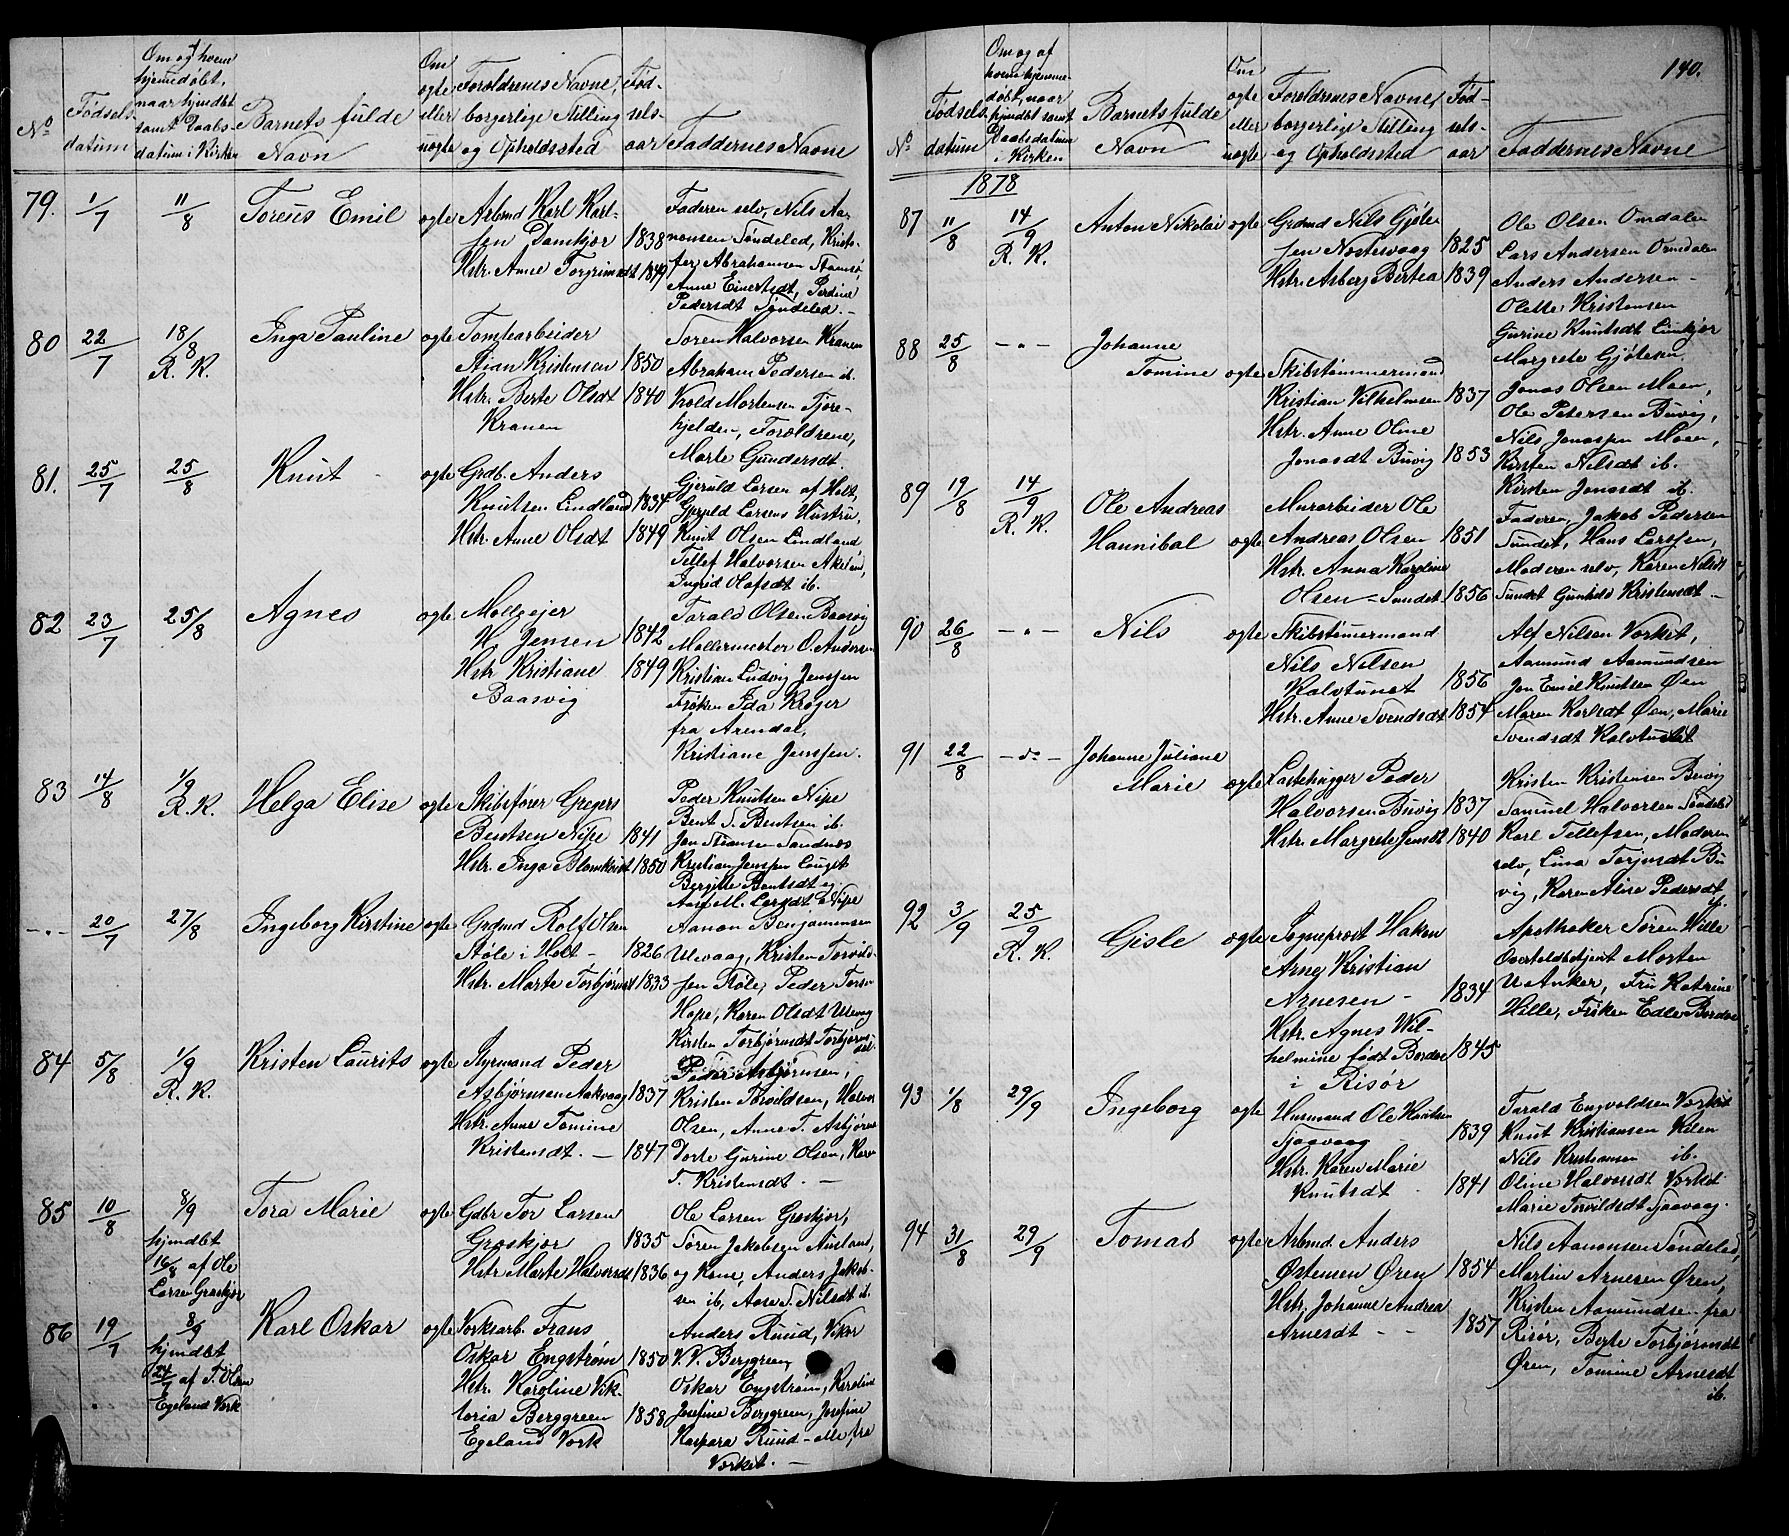 No
Fødsels-
datum
Om og af hvem
hjemmedøbt,
naar hjmdbt
samt Daabs-
datum i Kirken
Barnets fulde
Navn
Om
ægte
eller
uægte
Forældrenes Navne,
borgerlige Stilling
og Opholdssted
Fød-
sels-
aar
Faddernes Navne
79.
1/7
11/8
Toreus Emil
ægte
Arbmd Karl Karl-
sen Damkjær 1838
Hstr. Anne Torgrimsdt 1849
Faderen selv, Nils Aa-
nonsen Søndeled, Kristo-
fer Abrahamsen Stamsø,
Anne Einertsdt, Perdine
Pedersdt Søndeled. -
80
22/7
18/8
R. K.
Inga Pauline
ægte
Tomtearbeider
Stian Kristensen 1850
Hstr. Berte Olsdt 1840
Kranen
Søren Halvorsen Kranen
Abraham Pedersen ib.
Vrold Mortensen Tjore-
hjelden, Forældrene,
Marte Gundersdt.
81.
25/7
25/8
Knut
ægte
Grdb. Anders
Knutsen Lindland 1834
Hstr. Anne Olsdt 1849
Gjeruld Larsen af Holt,
Gjeruld Larsens Hustru,
Knut Olsen Lindland
Tellef Halvorsen
Ingrid Olafsdt ib.
82
23/7
25/8
Agnes
ægte
Mølleejer
H Jensen 1842
Hstr Kristiane 1849
Baasvig
Tarald Olsen Baasvig
Møllermester O. Andersen
Kristian Ludvig Jenssen
Frøken Ida Krøger
fra Arendal,
Kristiane Jenssen.
83
14/8
1/9
R. K.
Helga Elise
ægte
Skibsfører Gregers
Bentsen Nipe 1841
Hstr. Inga Blomkvist 1850
Peder Knutsen Nipe
Bent S. Bentsen ib.
Jan Stiansen Sandnæs
Kristian Jenssen Lauget
Bergitte Bentsdt og
M. Larsdt Nipe
-"-
20/7
27/8
Ingeborg Kirstine
ægte
Grdmd Rolf Olsen
Støle i Holt - 1826
Hstr. Marte Torbjørnsdt 1833
Aanon Benjaminsen
Ulevaag, Kristen Torvild-
sen Støle, Peder
Hope, Karen Olsdt Ulevag
Kirsten Torbjørnsdt
84
5/8
1/9
R. K.
Kristen Laurits
ægte
Styrmand Peder
Asbjørnsen Aakvaag 1837
Hstr. Anne Tomine
Kristensdt. - 1847
Peder Asbjørnsen,
Kristen Torvildsen, Halvor
Olsen, Anne T. Asbjørns
Dorte Gurine Olsen, Karen
T. Kristensdt. -
85
10/8
8/9
hjmdbt
16/8 af Ole
Larsen Graskjær
Tora Marie
ægte
Gdbr Tor Larsen
Graskjær 1835
Hstr Marte Halvorsdt 1836
Ole Larsen Graskjær,
Søren Jakobsen Ausland,
og Kone, Anders Jakob-
sen ib, Aase S. Nilsdt ib.
86
19/7
8/9
hjmdbt
24/7 af T. Olsen
Egeland Værk
Karl Oskar
ægte
Værksarb. Frans
Oskar Engstrøm 1850
Hstr. Karoline Vik-
toria Berggreen 1858
Egeland Værk
Anders Ruud, Viktor
V. V. Berggreen,
Oskar Engstrøm, Karoline
Josefine Berggreen, Josefine
Kaspara Ruud - alle fra
Værket. -
140.
No
Fødsels
datum
Om og af
hvem hjemme-
døbt, naar
hjmdbt samt
Daabsdatum
i Kirken
Barnets fulde
Navn
Om
ægte
eller
uægte
Forældrenes Navne,
borgerlige Stilling
og Opholdssted
Fød-
sels-
aar
Faddernes Navne
1878
87
11/8
14/9
R. K.
Anton Nikolai
ægte
Grdmd Nils Gjøle-
sen Nostevaag 1825
Hstr. Asberg Bertea 1839
Ole Olsen Omdalen
Lars Andersen Omdalen
Anders Andersen -
Olette Kristensen
Gurine Knutsdt Limkjær
Margrete Gjølesen.
88
25/8
-"-
Johanne
Tomine
ægte
Skibstømmermand
Kristian Vilhelmsen 1837
Hstr. Anne Oline
Jonasdt Buvig 1853
Jonas Olsen Moen,
Ole Petersen Buvig,
Nils Jonassen Moen,
Kirsten Nilsdt ib.
Kirsten Jonasdt ib.
89
19/8
14/9
R. K.
Ole Andreas
Hannibal
ægte
Murarbeider Ole
Andreas Olsen 1851
Hstr. Anna Karoline
Olsen - Sundet 1856
Faderen, Jakob Pedersen
Sundet, Hans Larssen,
Moderen selv, Karen Nilsdt
Sundet Gunhild Kristensdt -
90
26/8
-"-
Nils
ægte
Skibstømermand
Nils Nilsen
Kalvtunet 1856
Hstr. Anne Svendsdt 1854
Alf Nilsen Værket,
Aamund Aamundsen
Jon Emil Knutsen Øen
Maren Karlsdt Øen, Marie
Svendsdt Kalvtunet
91
22/8
-do-
Johanne Juliane
Marie
ægte
Lastehugger Peder
Halvorsen Buvig 1837
Hstr. Margrete Jensdt 1840
Kristen Kristensen Buvig
Samuel Halvorsen Søndeled
Karl Tellefsen, Moderen
selv, Lina Torjusdt Bu-
vig, Karen Aline Pedersdt
ib.
92
3/9
25/9
R. K.
Gisle
ægte
Sogneprest Hakon
Arne Kristian
Arnesen - 1834
Hstr. Agnes Wil-
helmine født Bordoe 1845
i Risør
Apotheker Søren Hille
Overtoldbetjent Morten
U Anker, Fru Katrine
Hille, Frøken Edle Bordoe
93
1/8
29/9
Ingeborg
ægte
Husmand Ole Knutsen
Sjaavaag 1839
Hstr. Karen Marie
Knutsdt 1841
Tarald Engvoldsen Værket
Knut Kristiansen Kilen
Nils Kristiansen ib.
Oline Halvorsdt Værket
Marie Torvildsdt Sjaavaag.
94
31/8
29/9
Tomas
ægte
Arbmd. Anders
Østensen Øren 1854
Hstr. Johanne Andrea
Arnesdt - - 1857
Nils Aanonsen Søndeled,
Martin Arnesen Øren,
Kristen Aamundsen fra
Risør, Berte Torbjørnsdt
Øren, Tomine Arnesdt
ib.